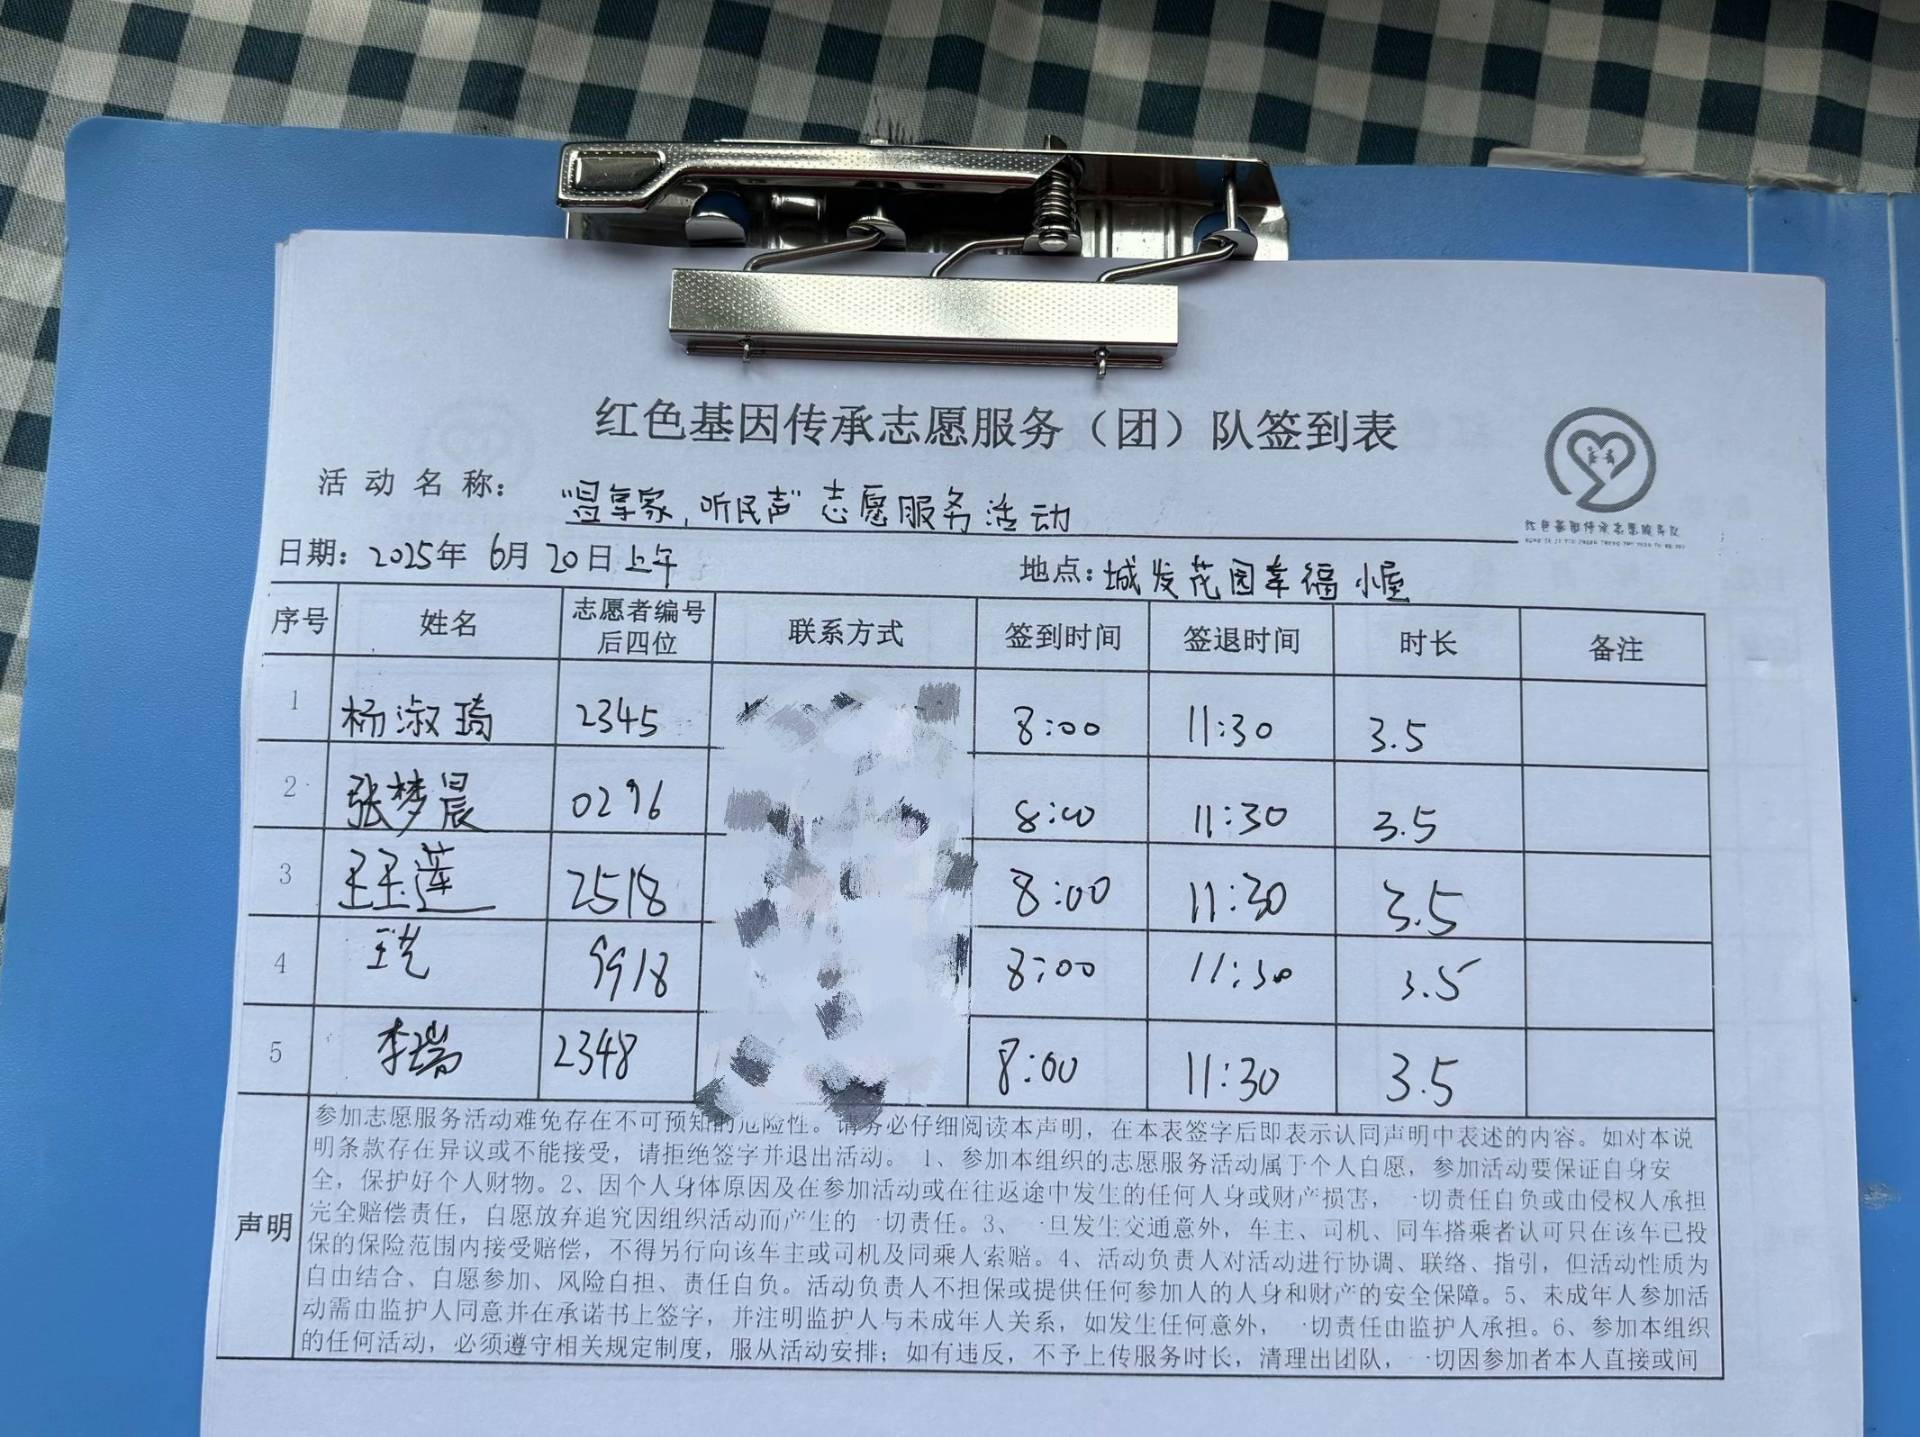 红色基因传承志愿服务（团）队签到表
活动名称： 享家，听民声" 志愿服务活动
红色基因传承志愿服务队
日期：2025年 6月 20日上午 地点：城发花园幸福小屋
序号 姓名 志愿者编号后四位 联系方式 签到时间 签退时间 时长 备注
1 杨淑琦 2345 8:00 11:30 3.5
2 张梦晨 0296 8:00 11:30 3.5
3 王玉莲 2518 8:00 11:30 3.5
4 9918 8:00 11:30 3.5
5 李瑞 2348 8:00 11:30 3.5
声明
参加志愿服务活动难免存在不可预知的危险性。请务必仔细阅读本声明，在本表签字后即表示认同声明中表述的内容。如对本说
明条款存在异议或不能接受，请拒绝签字并退出活动。 1、参加本组织的志愿服务活动属于个人自愿，参加活动要保证自身安
全，保护好个人财物。2、因个人身体原因及在参加活动或在往返途中发生的任何人身或财产损害，一切责任自负或由侵权人承担
完全赔偿责任，自愿放弃追究因组织活动而产生的一切责任。3、一旦发生交通意外，车主、司机、同车搭乘者认可只在该车已投
保的保险范围内接受赔偿，不得另行向该车主或司机及同乘人索赔。4、活动负责人对活动进行协调、联络、指引，但活动性质为
自由结合、自愿参加、风险自担、责任自负。活动负责人不担保或提供任何参加人的人身和财产的安全保障。5、未成年人参加活
动需由监护人同意并在承诺书上签字，并注明监护人与未成年人关系，如发生任何意外，一切责任由监护人承担。6、参加本组织
的任何活动，必须遵守相关规定制度，服从活动安排；如有违反，不予上传服务时长，清理出团队，一切因参加者本人直接或间